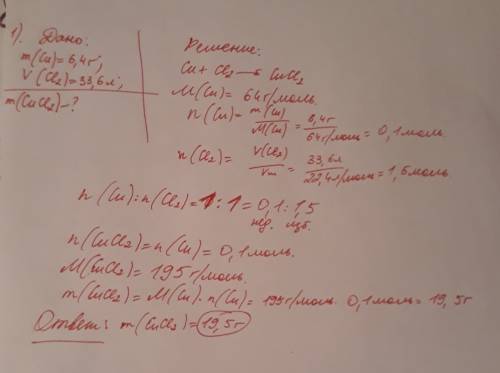 1). Дано:
m(Cu)=6,4г;
V(Cl2)=33,6л;
m(CuCl2)-?
Решение:
Cu + Cl2 → CuCl2
M(Cu)= 64г/моль.
n(Cu)= m(Cu)/M(Cu) = 6,4г/64г/моль = 0,1моль.
n(Cl2)= V(Cl2)/Vm = 33,6л/22,4л/моль = 1,5моль
n(Cu):n(Cl2)=1:1=0,1:1,5
нед. изб.
n(CuCl2)=n(Cu)=0,1моль.
M(CuCl2)=195г/моль.
m(CuCl2)=M(Cu)·n(Cu)=195г/моль. 0,1моль=19,5г
Ответ: m(CuCl2)=19,5г